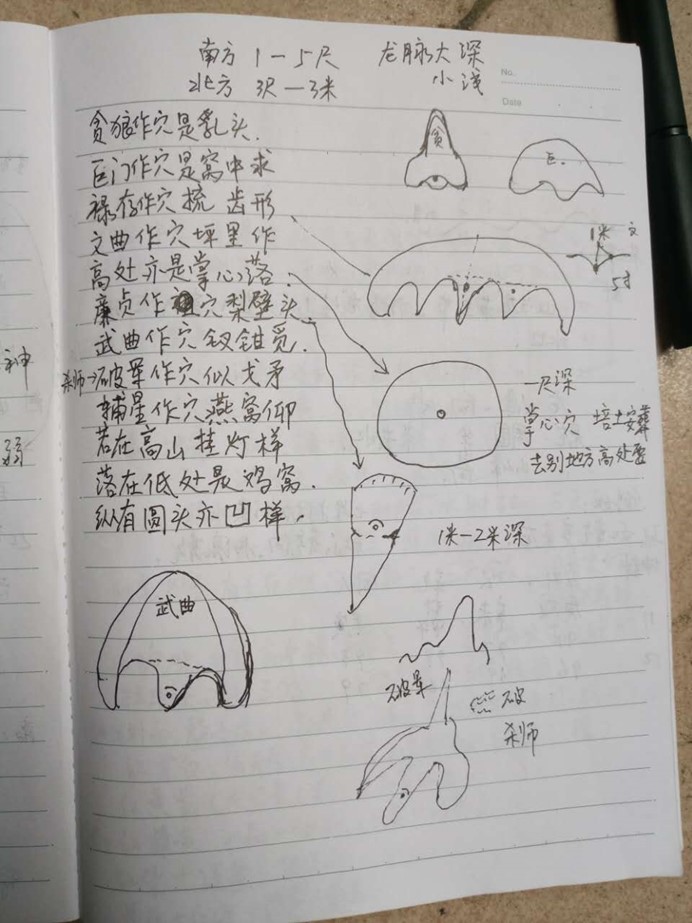 南方 1－5尺 龙脉大深
北方 3尺－3米 小浅
No.
Date
贪狼作穴是乳头.
巨门作穴是窝中求
禄存作穴梳齿形
文曲作穴坪里作
高处亦是掌心落.
廉贞作穴梨壁头.
武曲作穴钗钳觅.
杀师→破军作穴似戈矛
辅星作穴燕窝仰
若在高山挂灯样
落在低处是鸡窝.
纵有圆头亦凹样.
贪
巨.
1米
文
5寸
一尺深
掌心穴 培土安葬
去别地方高处
1米－2米深
武曲
破军
破
杀师
神
弱